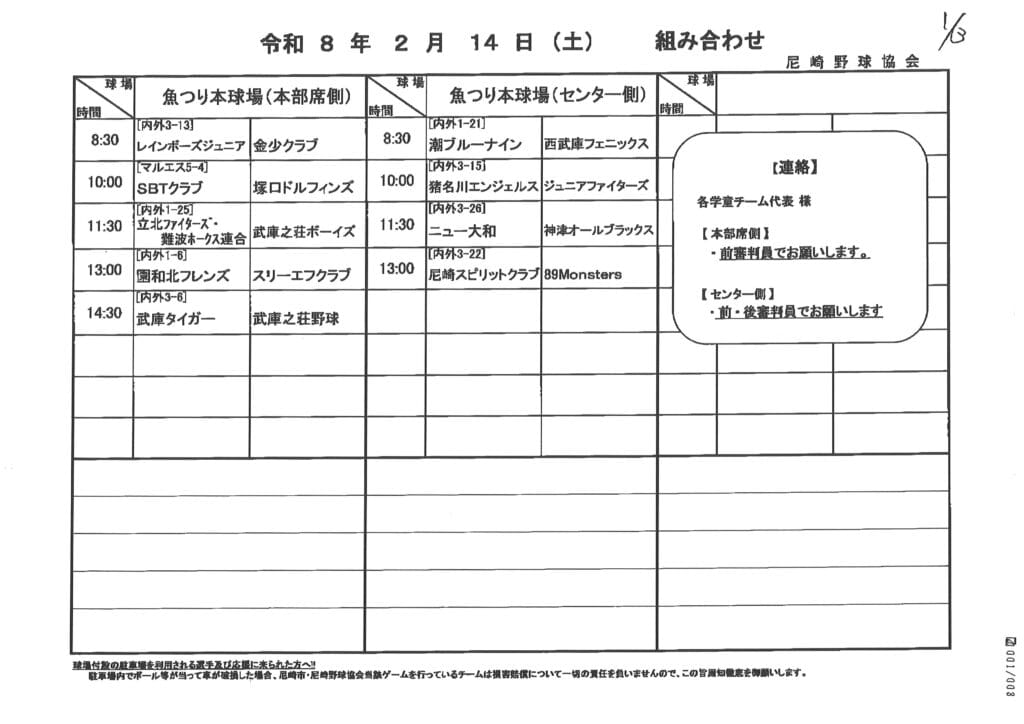 1/3
令和 8 年 2 月 14 日 (土) 組み合わせ
尼崎野球協会
球場 時間 魚つり本球場(本部席側) 球場 時間 魚つり本球場(センター側) 球場 時間
8:30 [内外3-13] レインボーズジュニア 金少クラブ 8:30 [内外1-21] 潮ブルーナイン 西武庫フェニックス
10:00 [マルエス5-4] SBTクラブ 塚口ドルフィンズ 10:00 [内外3-15] 猪名川エンジェルス ジュニアファイターズ
11:30 [内外1-25] 立北ファイターズ・難波ホークス連合 武庫之荘ボーイズ 11:30 [内外3-26] ニュー大和 神津オールブラックス
13:00 [内外1-6] 園和北フレンズ スリーエフクラブ 13:00 [内外3-22] 尼崎スピリットクラブ 89Monsters
14:30 [内外3-6] 武庫タイガー 武庫之荘野球
【連絡】
各学童チーム代表 様
【本部席側】
・前審判員でお願いします。
【センター側】
・前・後審判員でお願いします
球場付設の駐車場を利用される選手及び応援に来られた方へ!!
駐車場内でボール等が当って車が破損した場合、尼崎市・尼崎野球協会当該ゲームを行っているチームは損害賠償について一切の責任を負いませんので、この旨周知徹底を御願いします。
001/003